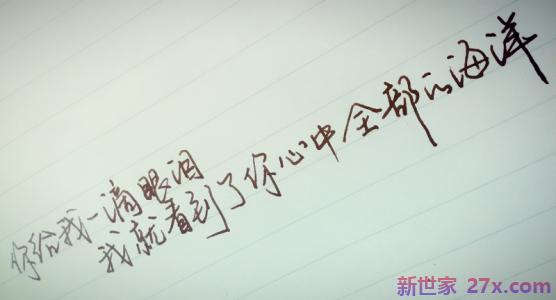 你给我一滴眼泪
我就看到了你心中全部的海洋
新世家 27x.com